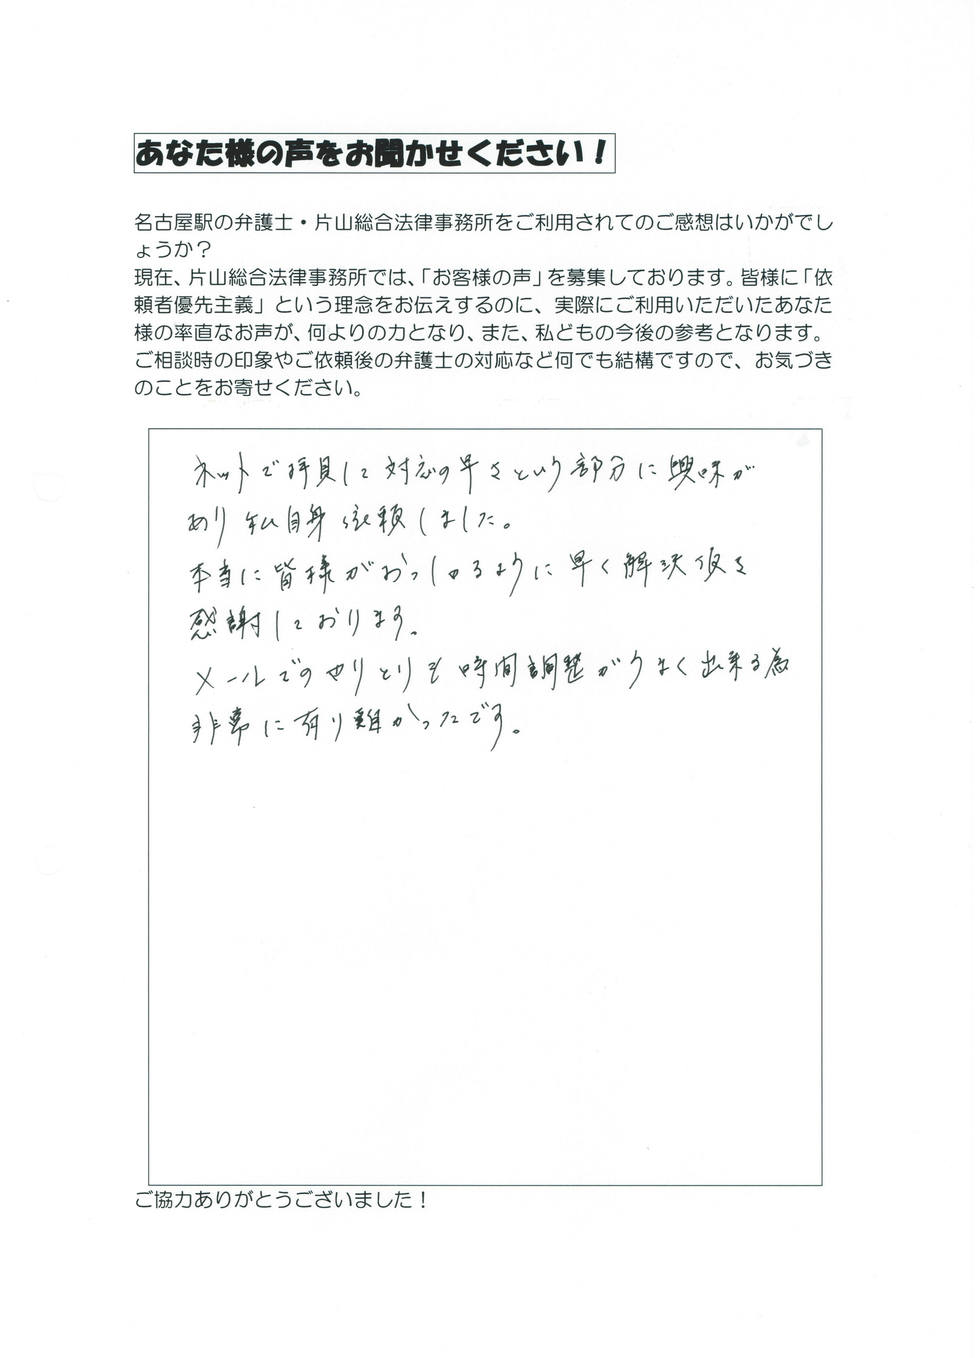 あなた様の声をお聞かせください！
名古屋駅の弁護士・片山総合法律事務所をご利用されてのご感想はいかがでし
ょうか？
現在、片山総合法律事務所では、「お客様の声」を募集しております。皆様に「依
頼者優先主義」という理念をお伝えするのに、実際にご利用いただいたあなた
様の率直なお声が、何よりの力となり、また、私どもの今後の参考となります。
ご相談時の印象やご依頼後の弁護士の対応など何でも結構ですので、お気づき
のことをお寄せください。
ネットで拝見して対応の早さという部分に興味が
あり私自身依頼しました。
本当に皆様がおっしゃるように早く解決
感謝しております。
メールでのやりとりも時間調整がうまく出来る為
非常に有り難かったです。
ご協力ありがとうございました！